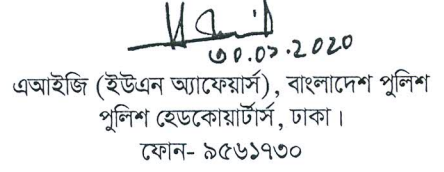 ৩০.০১.2020
এআইজি (ইউএন অ্যাফেয়ার্স), বাংলাদেশ পুলিশ
পুলিশ হেডকোয়ার্টার্স, ঢাকা।
ফোন- ৯৫৬১৭৩০